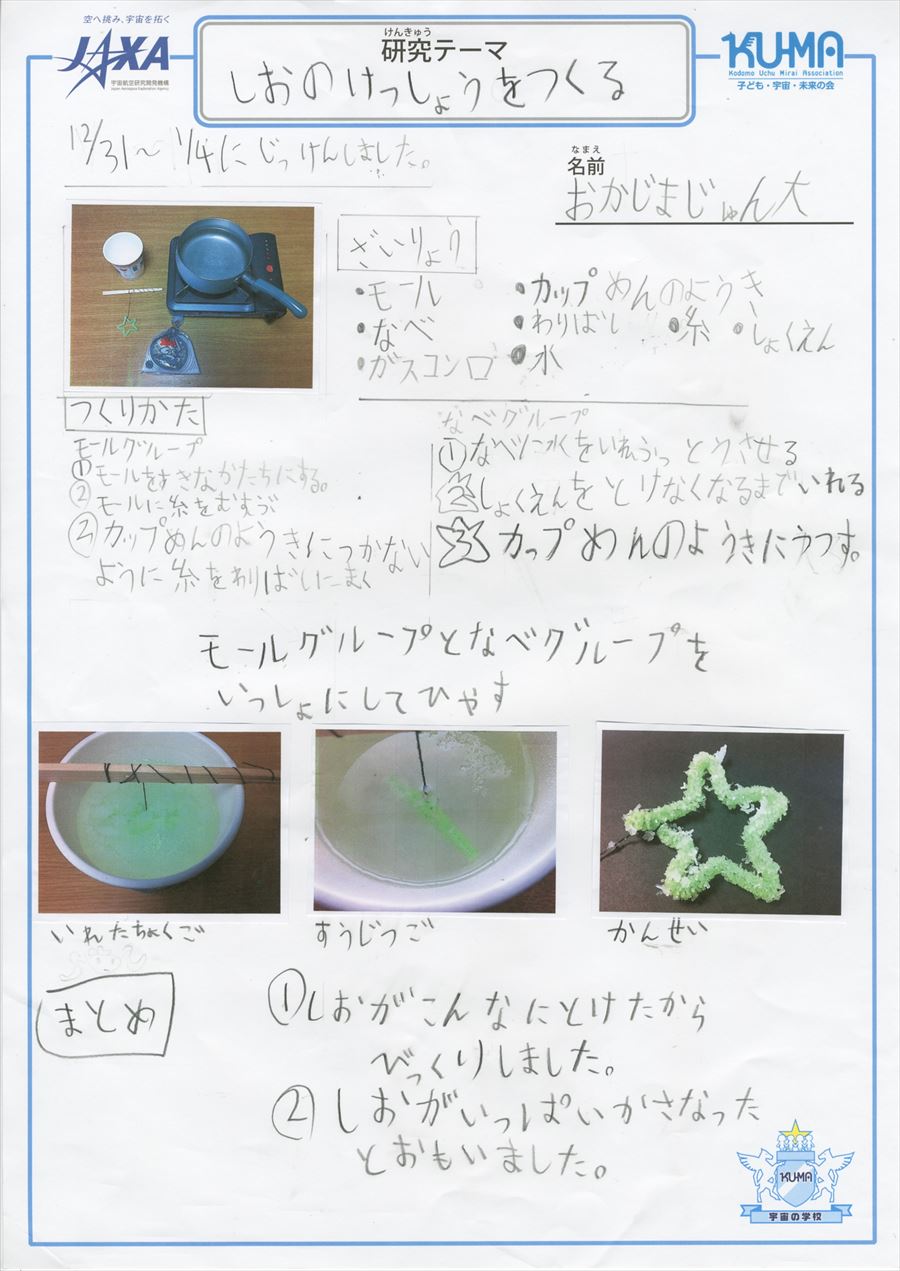 空へ挑み、宇宙を拓く
JAXA
宇宙航空研究開発機構
Japan Aerospace Exploration Agency
けんきゅう
研究テーマ
しおのけっしょうをつくる
KU-MA
Kodomo Uchu Mirai Association
子ども・宇宙・未来の会
12/31〜1/4にじっけんしました。
なまえ
名前
おかじまじゅん大
ざいりょう
・モール
・なべ
・ガスコンロ
・カップめんのようき
・わりばし ・糸 ・しょくえん
・水
つくりかた
モールグループ
①モールをすきなかたちにする。
②モールに糸をむすぶ
③カップめんのようきにつかない
ように糸をわりばしにまく
なべグループ
①なべに水をいれふっとうさせる
②しょくえんをとけなくなるまでいれる
③カップめんのようきにうつす。
モールグループとなべグループを
いっしょにしてひやす
いれたちょくご
すうじつご
かんせい
まとめ
①しおがこんなにとけたから
びっくりしました。
②しおがいっぱいかさなった
とおもいました。
KU-MA
宇宙の学校